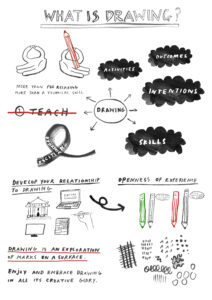 WHAT IS DRAWING?
OUTCOMES
ACTIVITIES
INTENTIONS
MORE THAN A TECHNICAL SKILL
1 TEACH
DRAWING
SKILLS
DEVELOP YOUR RELATIONSHIP
TO DRAWING
OPENNESS OF EXPERIENCE
DRAWING IS AN EXPLORATION
OF MARKS ON A SURFACE.
ENJOY AND EMBRACE DRAWING
IN ALL ITS CREATIVE GLORY.